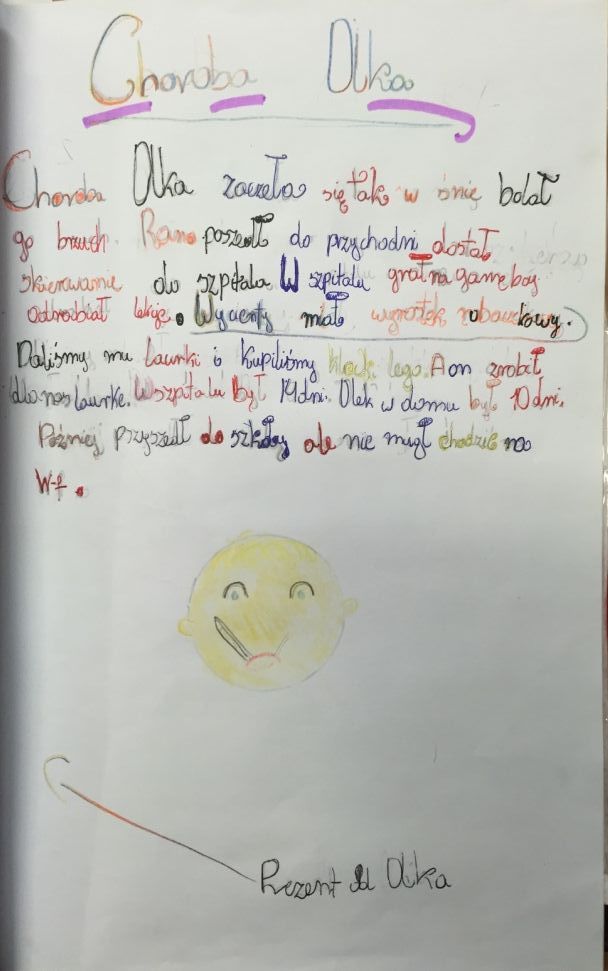 Choroba Olka
Choroba Olka zaczeła się tak w śnię bolał
go brzuch. Rano poszedł do przychodni dostał
skierowanie do szpitala W szpitalu grał na gameboy
Odbrabiał lekcję. Wycienty miał wyrostek robaczkowy.
Daliśmy mu laurki i kupiliśmy klocki lego. A on zrobił
dla nas laurke. W szpitalu był 14 dni. Olek w domu był 10 dni.
Póżniej przyszedł do szkoły ale nie mugł chodzić na
W-f.
Prezent dl Olka